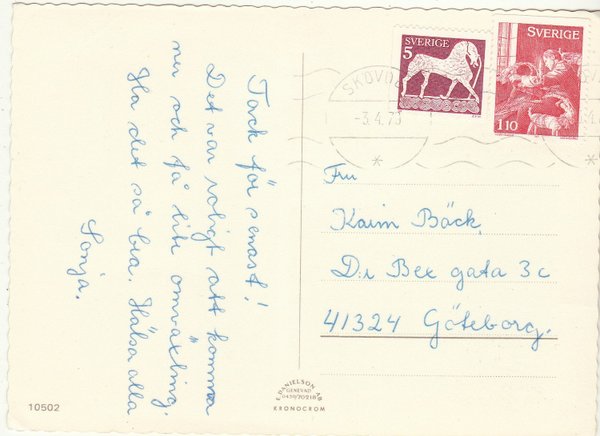 Tack för senast!
Det var roligt att komma
ner och få lite omväxling.
Ha det så bra. Hälsa alla
Sonja.
SVERIGE
5
SVERIGE
110
SKÖVDE
-3.4.73
Fru
Karin Bäck
D:r Bex gata 3c
41324 Göteborg.
E. DANIELSON AB
GENEVAD
0430/70218
KRONOCROM
10502